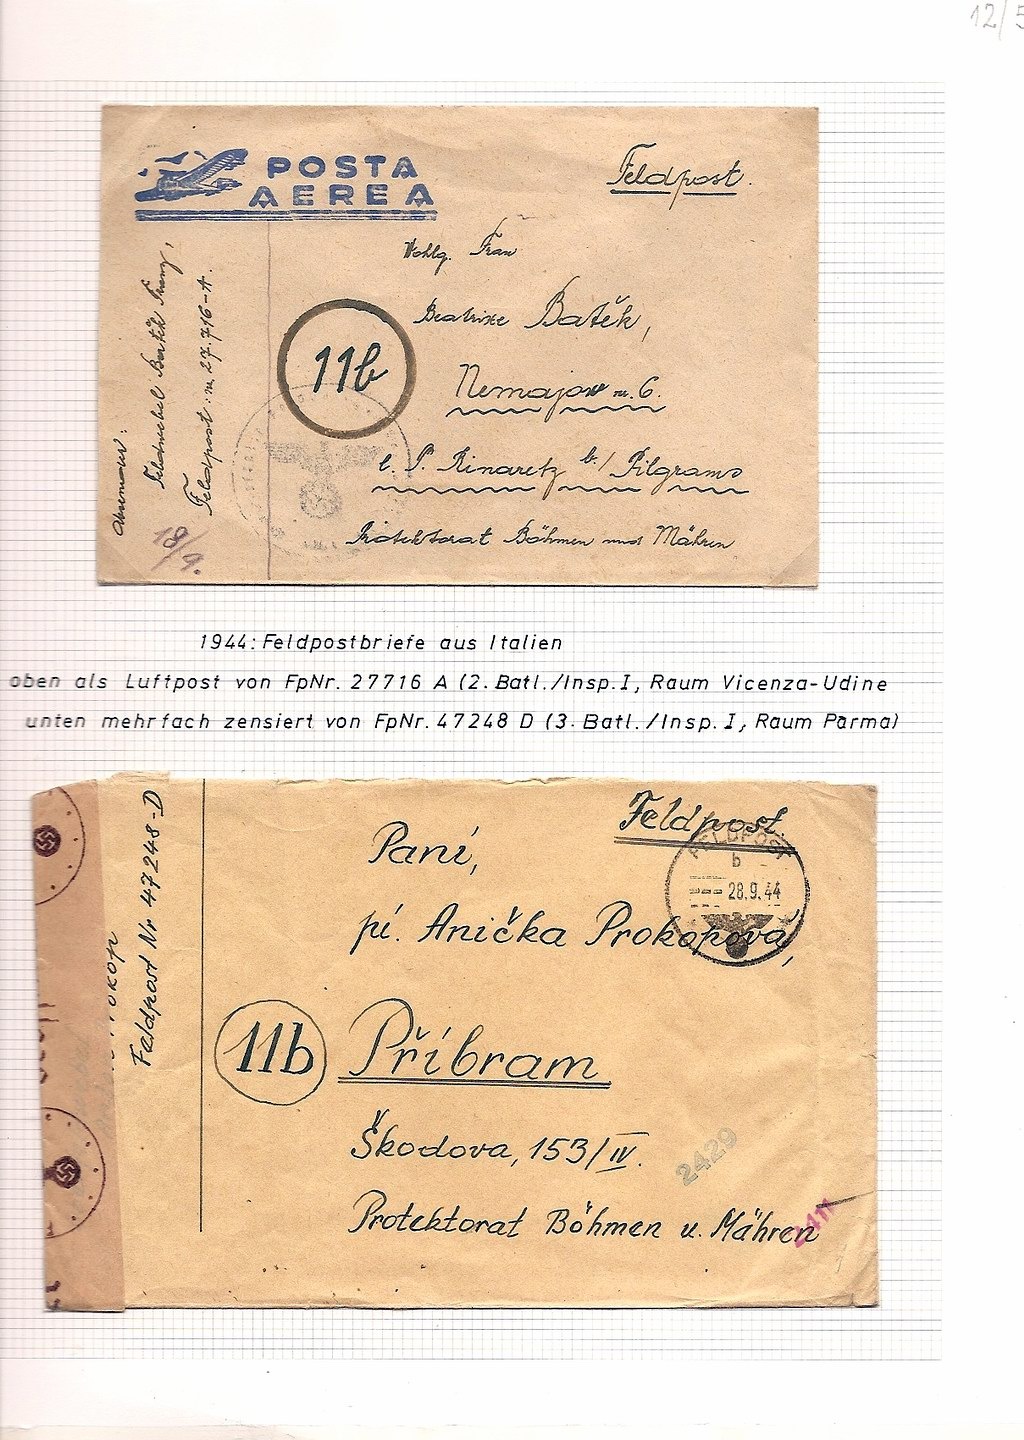 12/5
POSTA
AEREA
Feldpost.
Wohlg. Frau
Beatrixe Batěk,
11b
Nemajow nr. 6.
l. P. Rinaretz b./ Pilgrams
Protektorat Böhmen und Mähren
Feldwebel Batěk Franz,
Feldpost: nr. 27.716-A.
18/9.
1944: Feldpostbriefe aus Italien
oben als Luftpost von FpNr. 27716 A (2. Batl./Insp. I, Raum Vicenza-Udine
unten mehrfach zensiert von FpNr. 47248 D (3. Batl./Insp. I, Raum Parma)
Feldpost.
FELDPOST
b
28.9.44
Paní,
pí. Anička Prokopová,
11b
Příbram
Škodova, 153/IV.
Protektorat Böhmen u. Mähren
Feldpost Nr 47248-D
2429